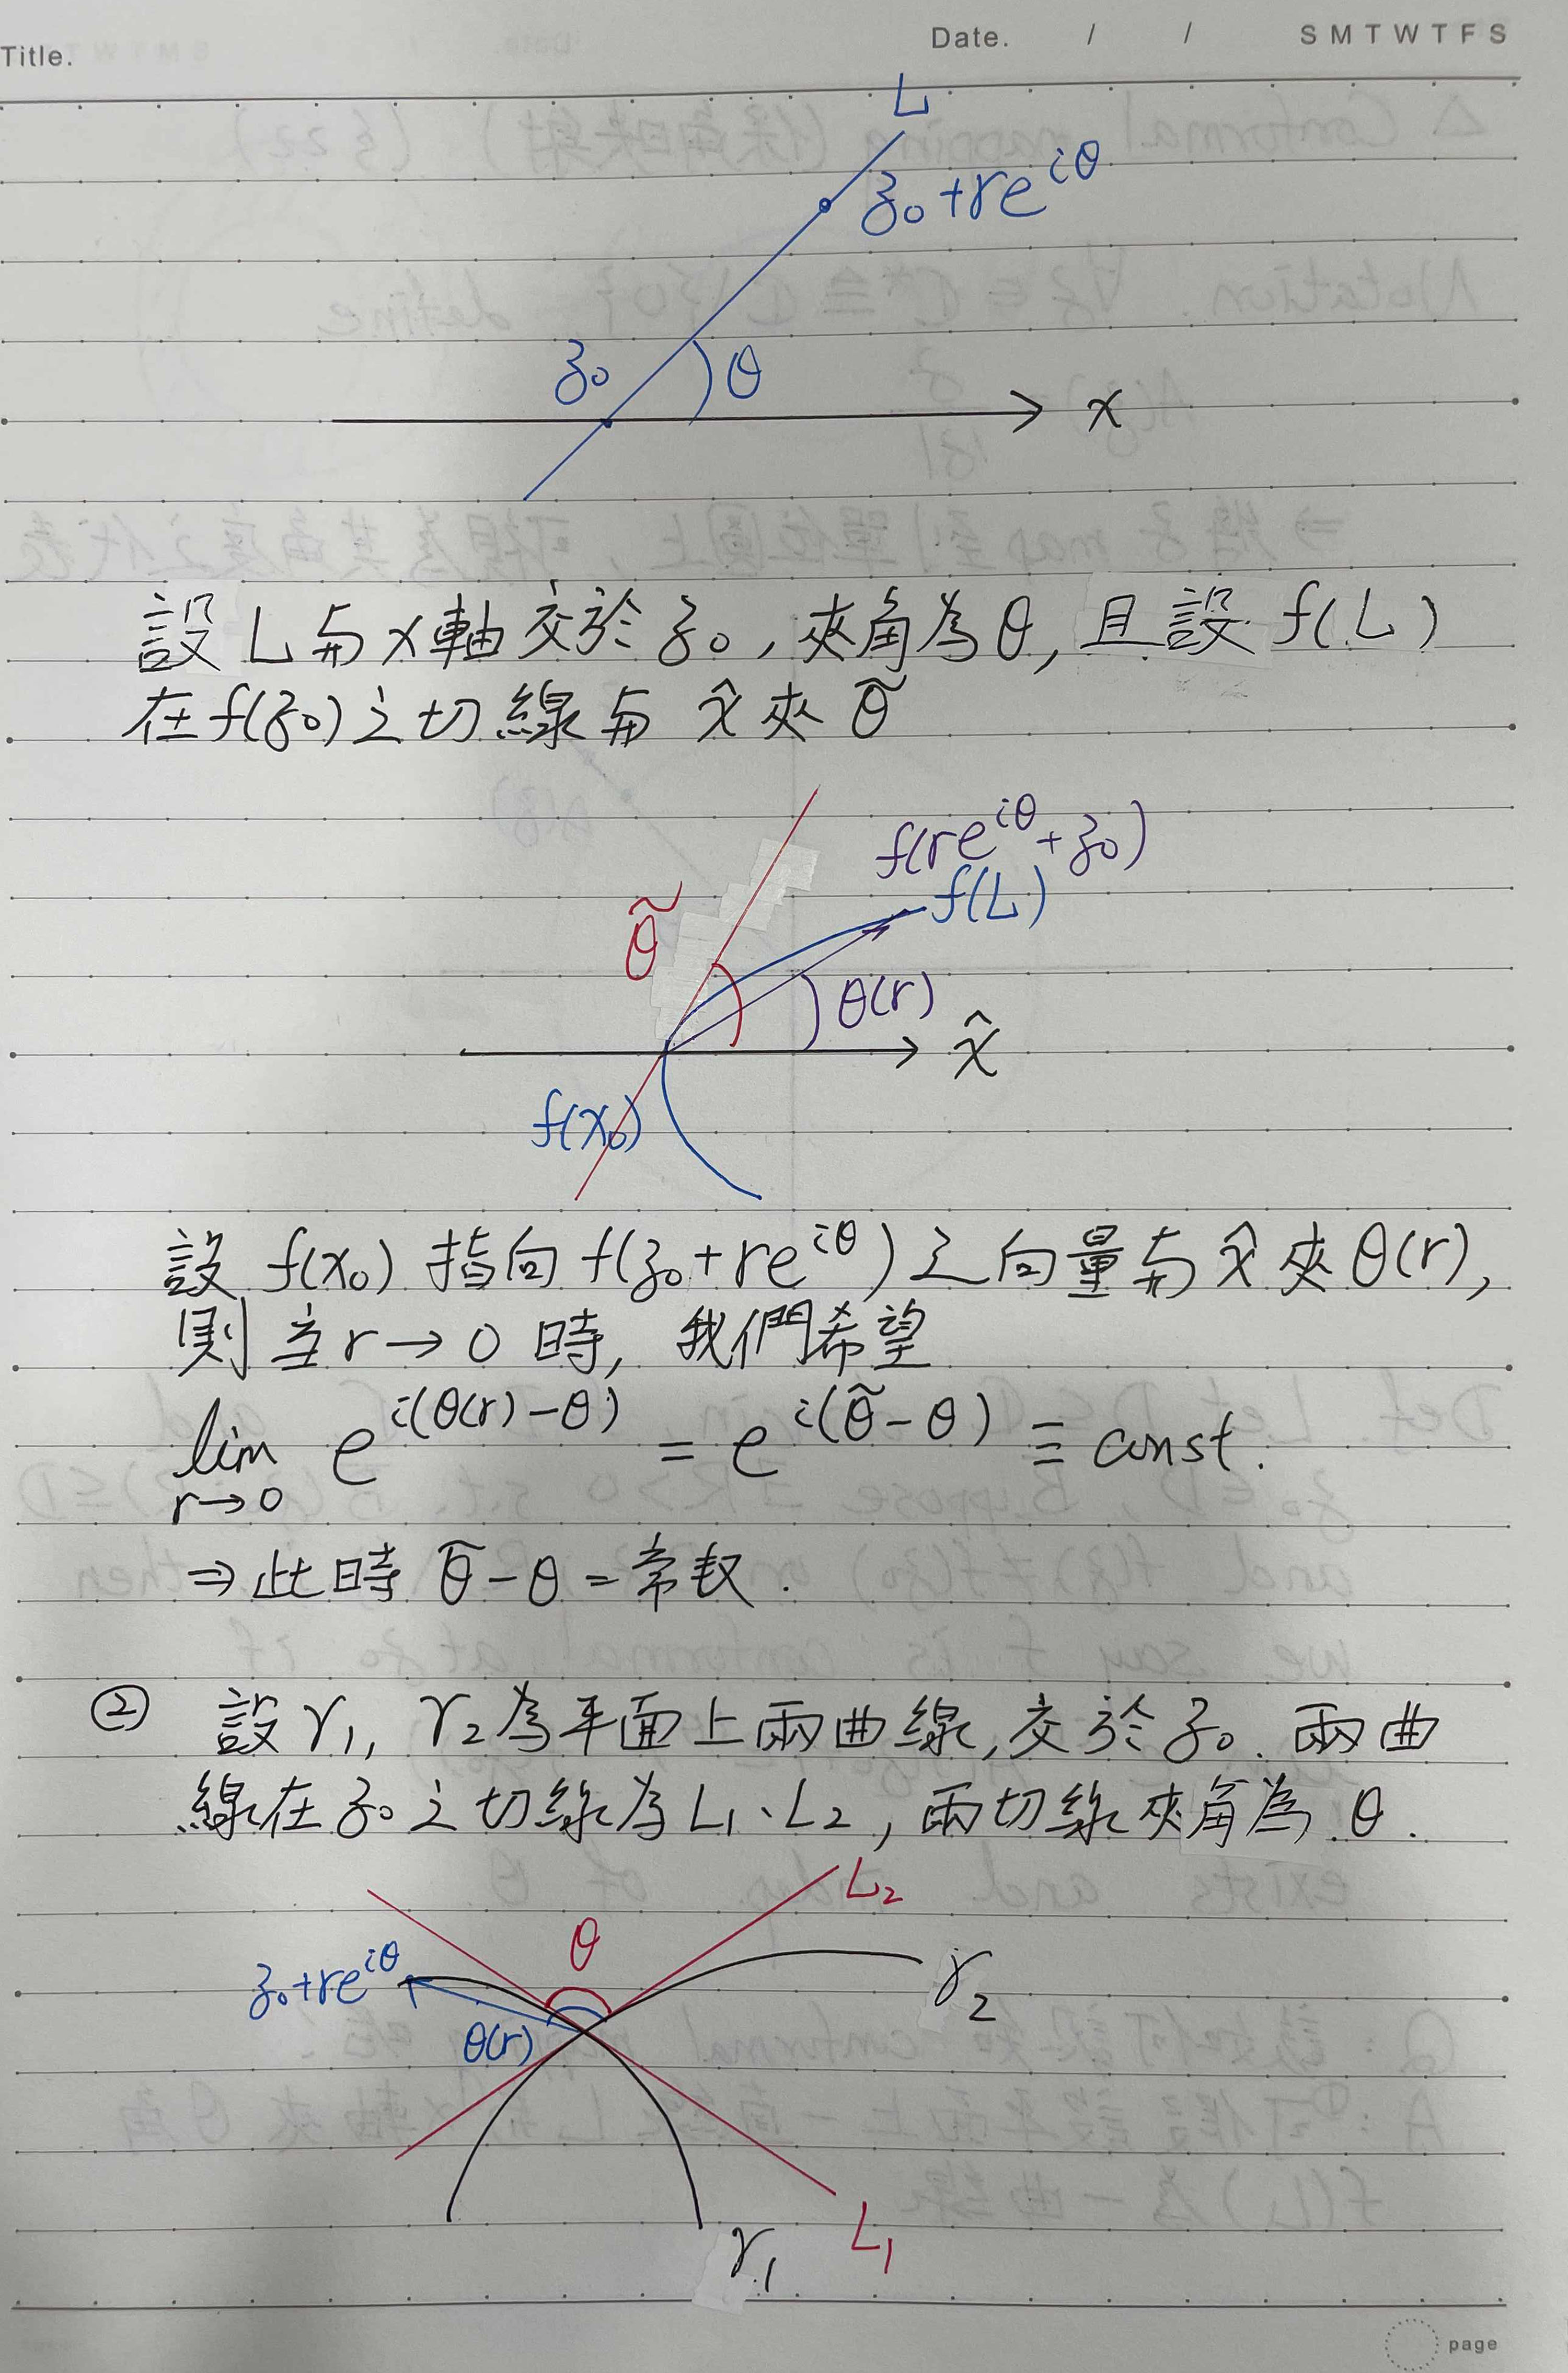 Title.
Date. / / S M T W T F S
L
z₀+re^{iθ}
z₀ θ
x
設 L 與 x 軸交於 z₀, 夾角為 θ, 且設 f(L)
在 f(z₀) 之切線與 x̂ 夾 θ̃
f(re^{iθ}+z₀)
f(L)
θ̃
θ(r)
x̂
f(x₀)
設 f(x₀) 指向 f(z₀+re^{iθ}) 之向量與 x̂ 夾 θ(r),
則當 r→0 時, 我們希望
lim_{r→0} e^{i(θ(r)-θ)} = e^{i(θ̃-θ)} ≡ const.
⇒ 此時 θ̃-θ = 常數.
② 設 γ₁, γ₂ 為平面上兩曲線, 交於 z₀. 兩曲
線在 z₀ 之切線為 L₁、L₂, 兩切線夾角為 θ.
L₂
θ
z₀+re^{iθ}
γ₂
θ(r)
γ₁
L₁
page